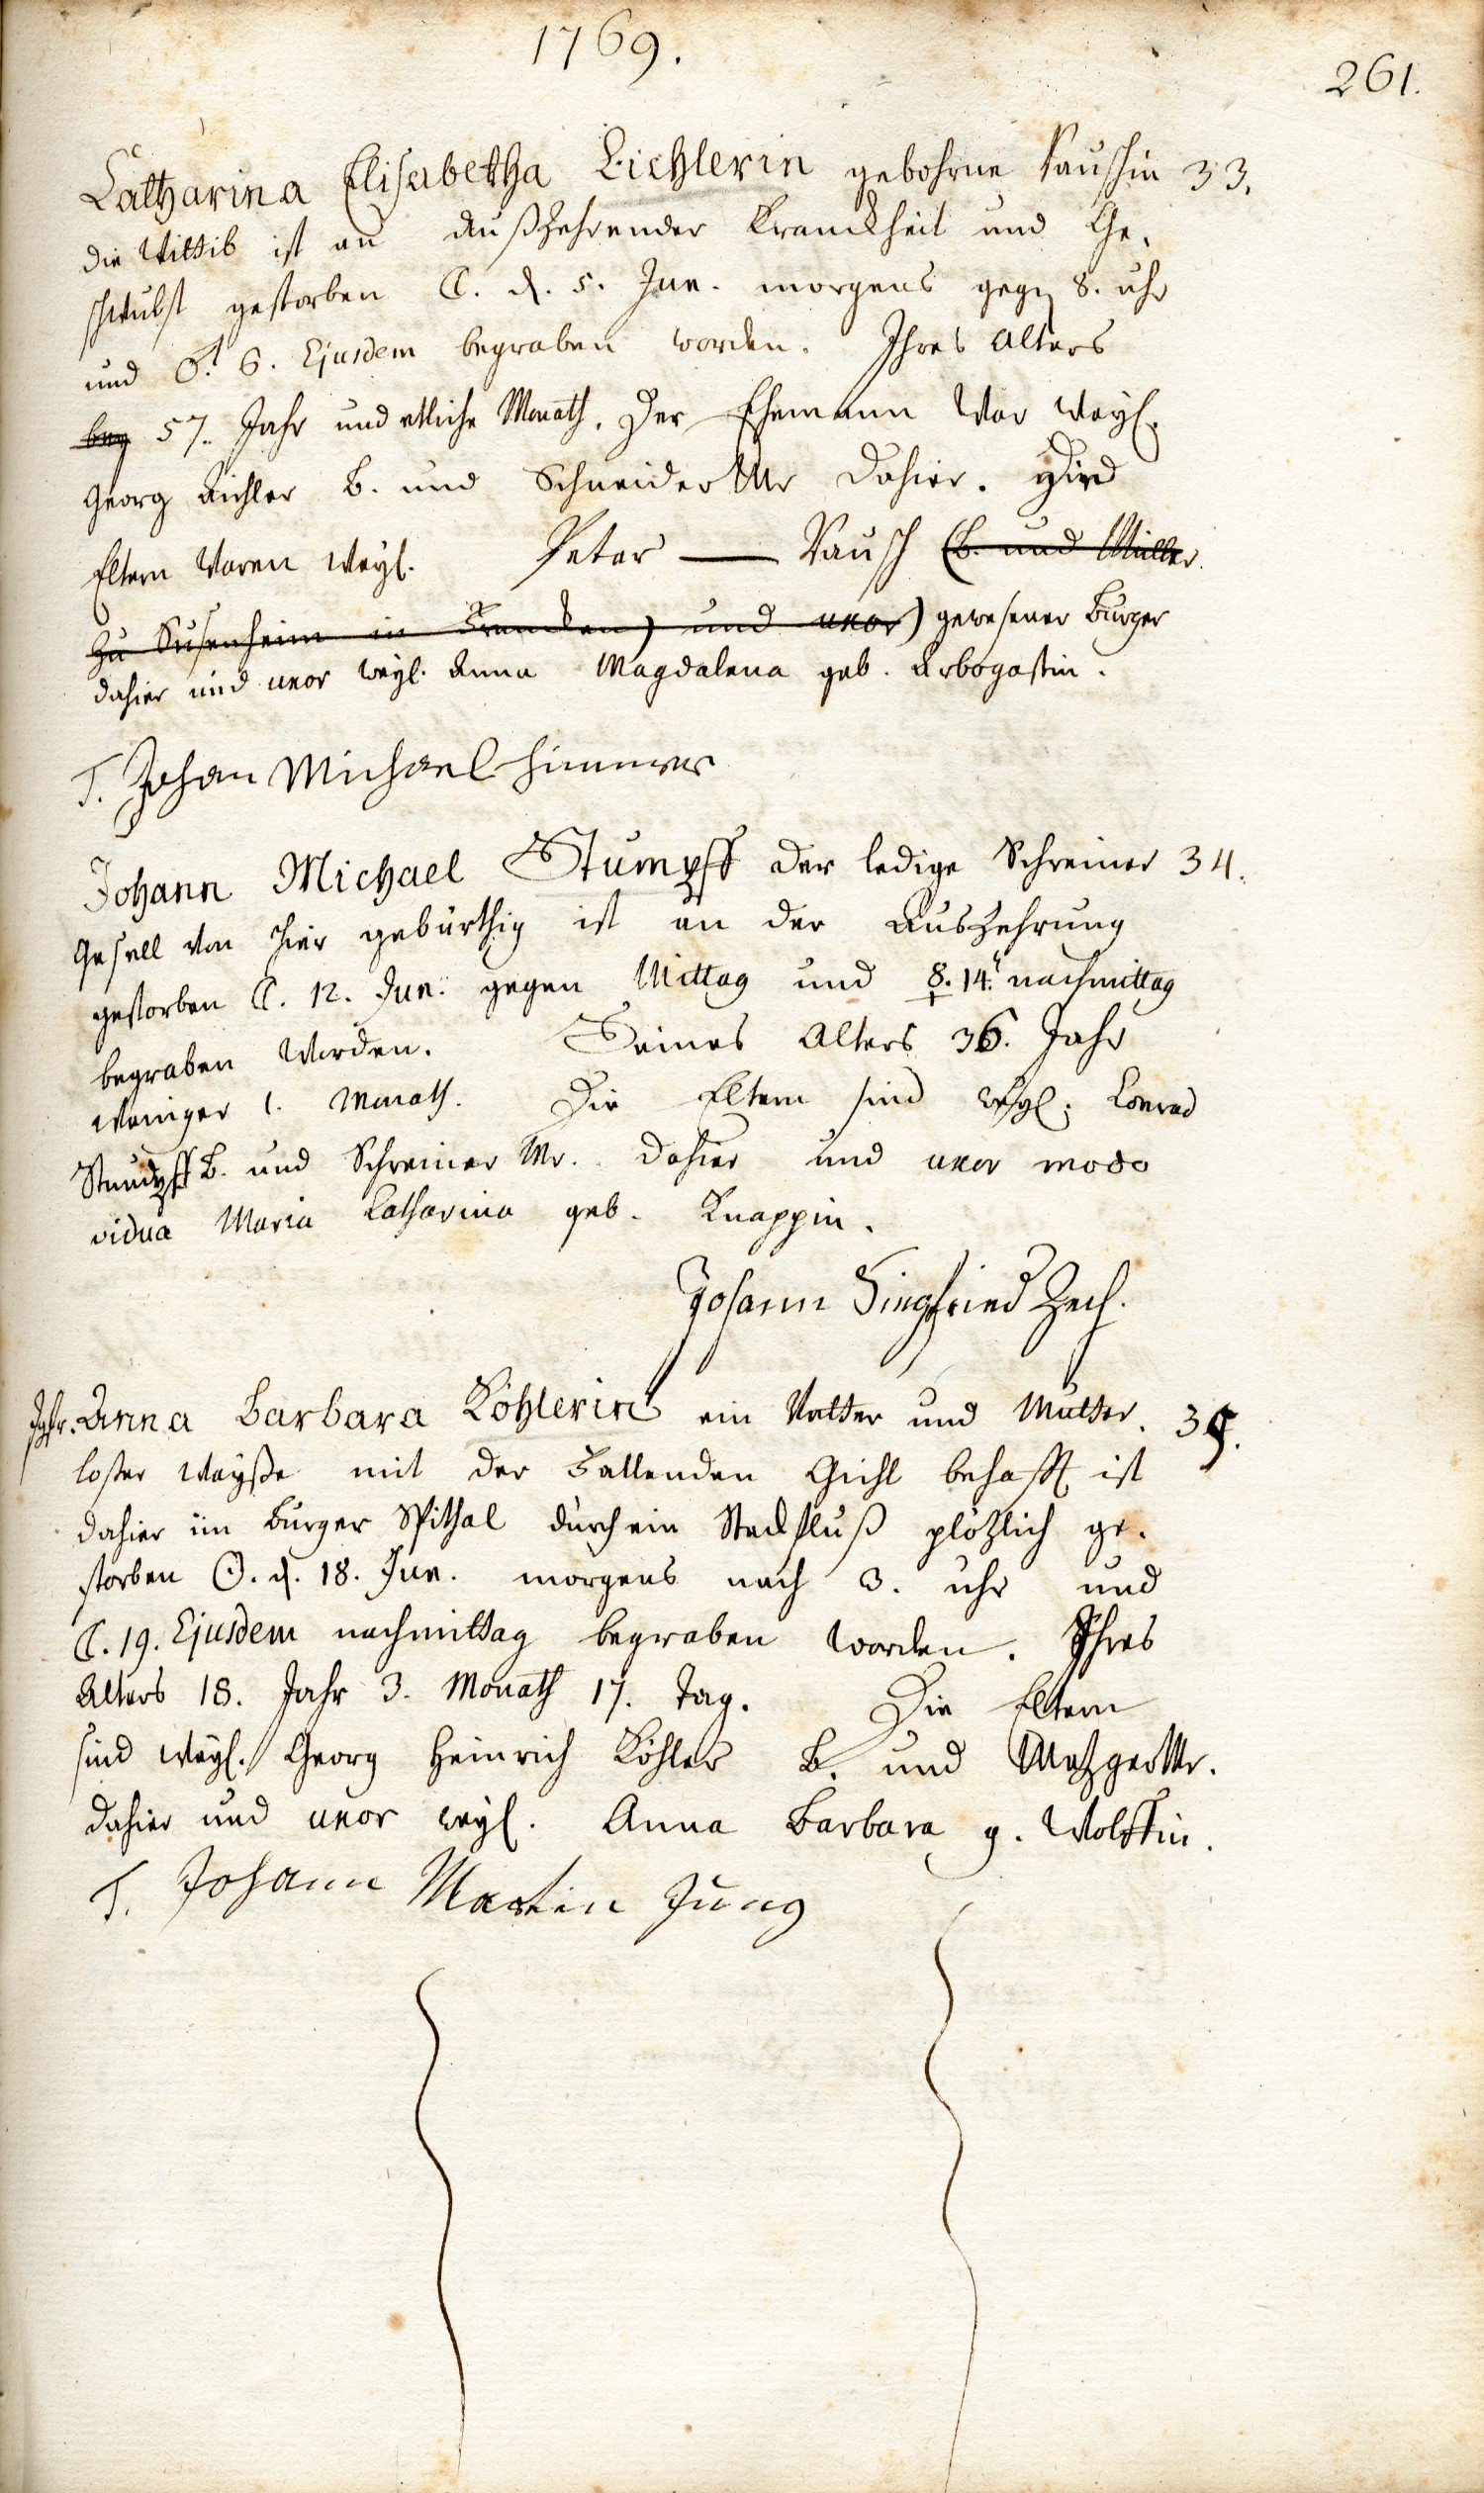 1769.
261.
Catharina Elisabetha Eichlerin gebohrne Pauschin 33.
die Wittib ist an Außzehrender Kranckheit und Ge-
schwulst gestorben ☾. d. 5. Jun. morgens gegen 8. uhr
und ♂. 6. Ejusdem begraben worden. Ihres Alters
bey 57. Jahr und etliche Monath. Der Ehemann War Weyl.
Georg Aichler B. und Schneider Mr dahier. Die
Eltern Waren Weyl. Peter — Pausch (B. und Müller
zu in Francken) und uxor) gewesener Burger
dahier und uxor weyl. Anna Magdalena geb. Arbogastin.
T. Johan Michael Himmer
Johann Michael Stumpff der ledige Schreiner 34.
Gesell von hier gebürthig ist an der Auszehrung
gestorben ☾. 12. Jun. gegen Mittag und ☿. 14. nachmittag
begraben Worden. Seines Alters 36. Jahr
Weniger 1. Monath. Die Eltern sind weyl. Conrad
Stumpff B. und Schreiner Mr. dahier und uxor modo
vidua Maria Catharina geb. Knappin.
Johann Siegfried Zech.
Jgfr. Anna Barbara Köhlerin ein Vatter und Mutter- 35.
loser Wayße mit der Fallenden Gicht behafft ist
dahier im Burger Spithal durch ein Steckfluß plötzlich ge-
storben ☉. d. 18. Jun. morgens nach 3. uhr und
☾. 19. Ejusdem nachmittag begraben worden. Ihres
Alters 18. Jahr 3. Monath 17. Tag. Die Eltern
sind Weyl. Georg Heinrich Köhler B. und Metzger Mr.
dahier und uxor weyl. Anna Barbara g. Wolffin.
T. Johann Martin Jung